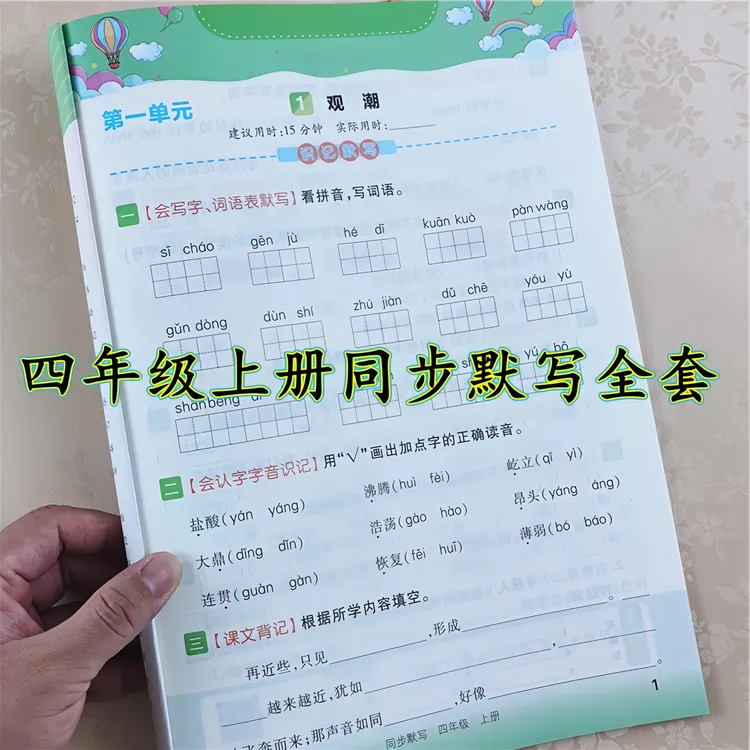 第一单元
1 观潮
建议用时:15分钟 实际用时:______
识记默写
一【会写字、词语表默写】看拼音,写词语。
sī cháo gēn jù hé dī kuān kuò pàn wàng
gǔn dòng dùn shí zhú jiàn dǔ chē yóu yù
四年级上册同步默写全套
shān bēng
二【会认字字音识记】用“√”画出加点字的正确读音。
盐酸(yán yáng) 沸腾(huì fèi) 屹立(qǐ yì)
大鼎(dǐng dǐn) 浩荡(gào hào) 昂头(yáng áng)
连贯(guàn gàn) 恢复(fēi huī) 薄弱(bó báo)
三【课文背记】根据所学内容填空。
再近些,只见__________,形成__________。
____越来越近,犹如__________,__________
飞奔而来;那声音如同__________,好像__________。
同步默写 四年级 上册
1